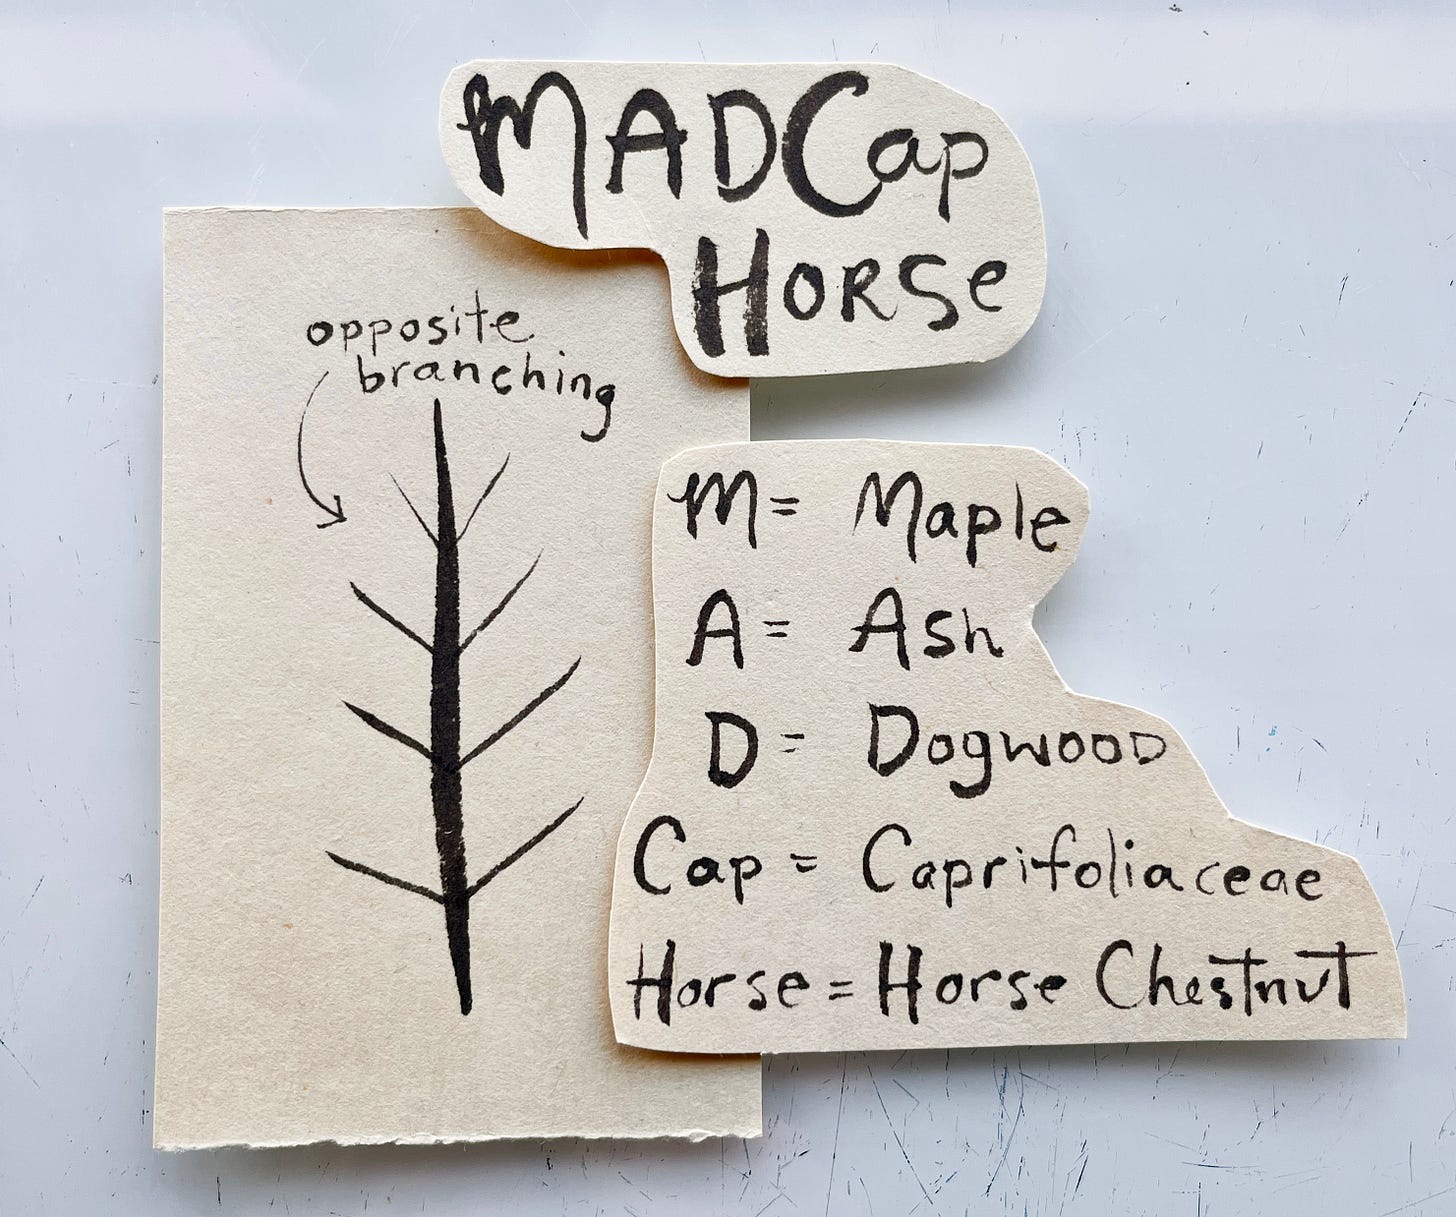 MADCap
Horse
opposite
branching
M = Maple
A = Ash
D = Dogwood
Cap = Caprifoliaceae
Horse = Horse Chestnut